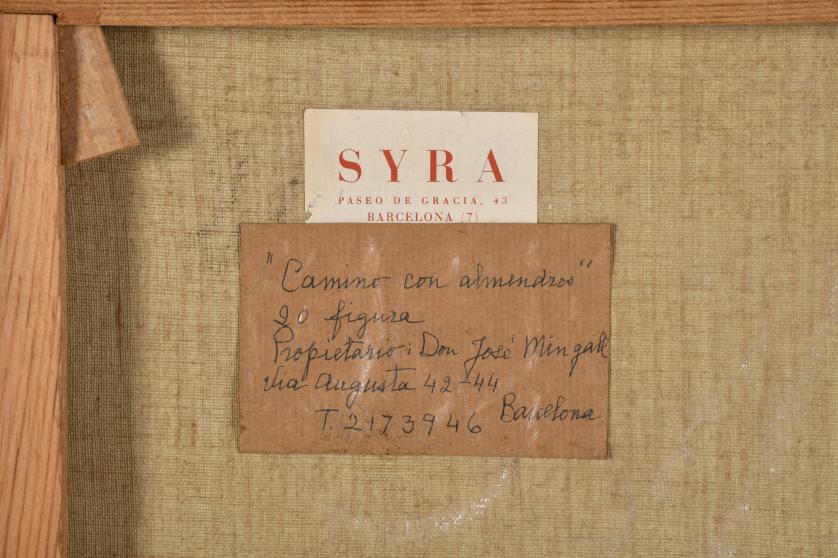 SYRA
PASEO DE GRACIA, 43
BARCELONA (7)
"Camino con almendros"
20 figura
Propietario: Don José Mingall
Via Augusta 42-44
Barcelona
T. 2173946